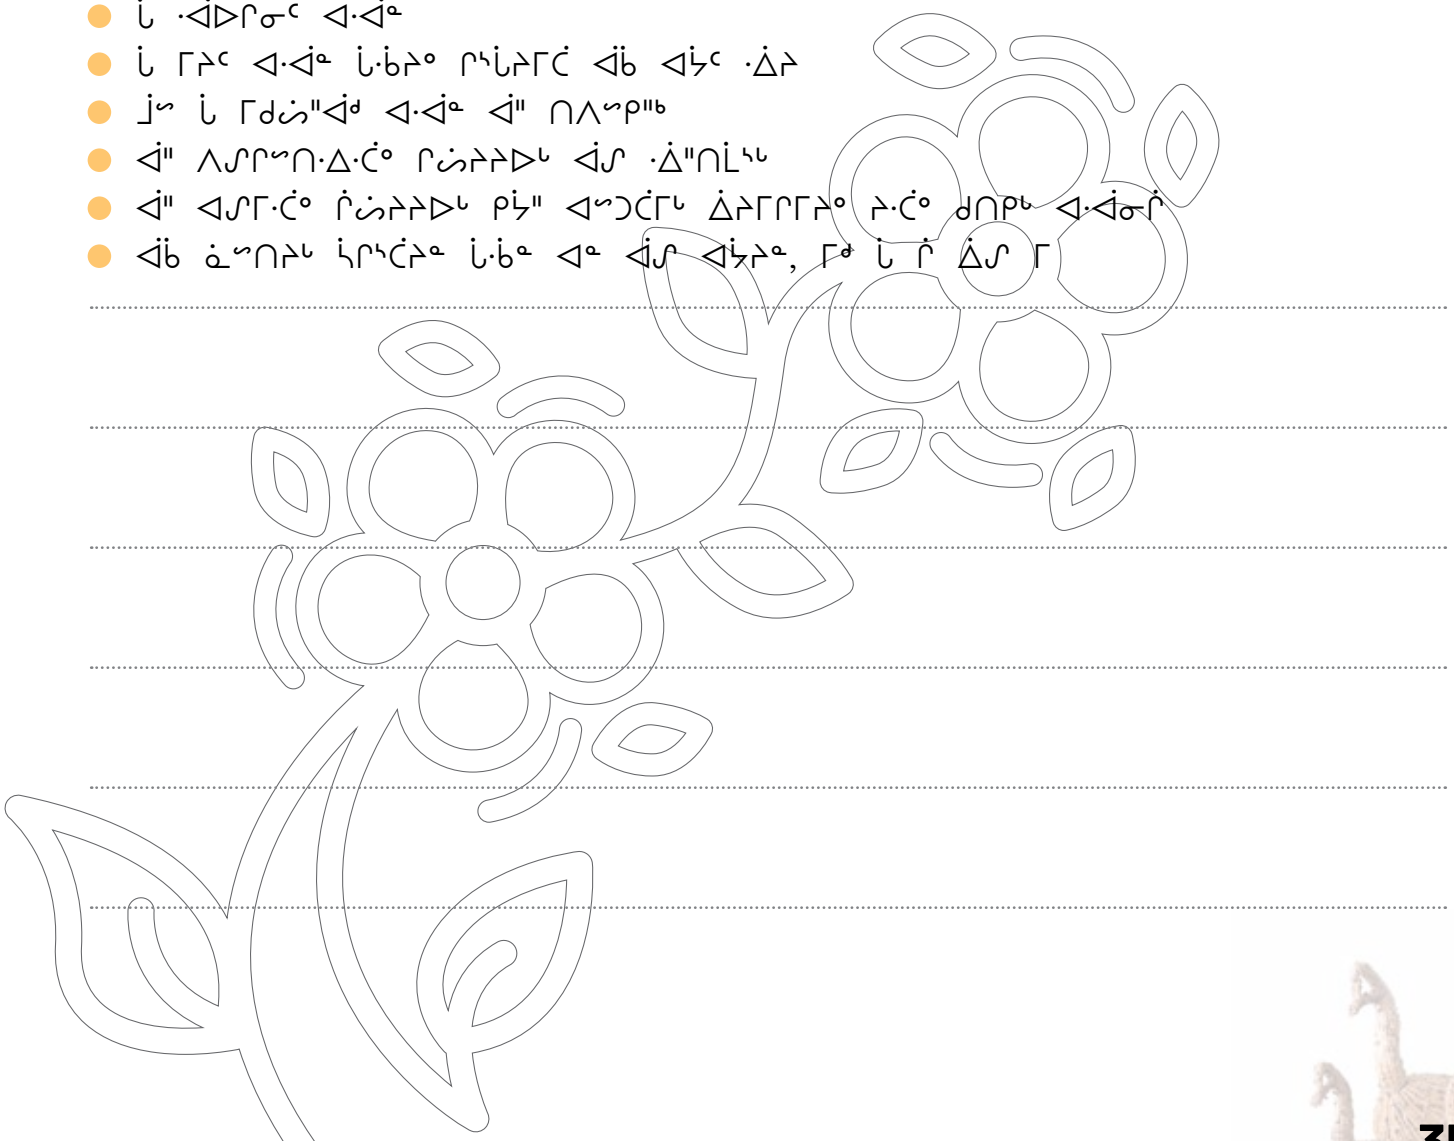 ᒑ ᐙᐅᒋᓂᑦ ᐊᐚᓐ
ᒑ ᒥᔨᑦ ᐊᐚᓐ ᒑᑿᔨᐤ ᒋᔅᒑᔨᒥᑖ ᐋᑳ ᐊᔮᑦ ᐐᔨ
ᒨᔥ ᒑ ᒥᑯᔖᐦᐋᒄ ᐊᐚᓐ ᐋᐦ ᑎᐱᔥᑭᐦᒃ
ᐋᐦ ᐱᔑᒋᔥᑎᐧᐃᑣᐤ ᒋᔖᔨᔨᐅᒡ ᐋᔑ ᐐᐦᑎᒫᔅᒡ
ᐋᐦ ᐊᔑᒥᑣᐤ ᒌᔖᔨᔨᐅᒡ ᑭᔮᐦ ᐊᔥᑐᑖᒥᒡ ᐄᔨᒥᒋᒥᔨᐤ ᔨᑣᐤ ᑯᑎᑭᒡ ᐊᐚᓂᒌ
ᐋᑳ ᓈᔥᑎᔨᒡ ᓵᒋᔅᑖᔨᓐ ᒑᑾᓐ ᐊᓐ ᐋᔑ ᐊᔮᔨᓐ, ᒥᒄ ᒑ ᒌ ᐄᔑ ᒥ